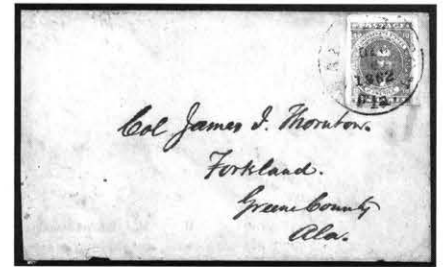 POSTAGE
1862
Col James I. Thornton.
Forkland.
Greene County
Ala.